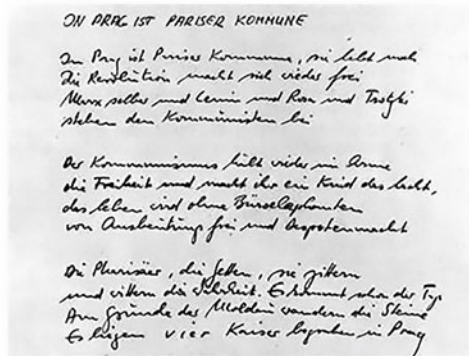 IN PRAG IST PARISER KOMMUNE
In Prag ist Pariser Kommune, sie lebt noch
Die Revolution macht sich wieder frei
Marx selber und Lenin und Rosa und Trotzki
stehen den Kommunisten bei
Der Kommunismus hält wieder im Arme
die Freiheit und macht ihr ein Kind das lacht,
das Leben wird ohne Büroelephanten
von Ausbeutung frei und Despotenmacht
Die Pharisäer, die fetten, sie zittern
und wittern die Wahrheit. Es kommt schon der Tag
Am Grunde der Moldau wandern die Steine
Es liegen vier Kaiser begraben in Prag